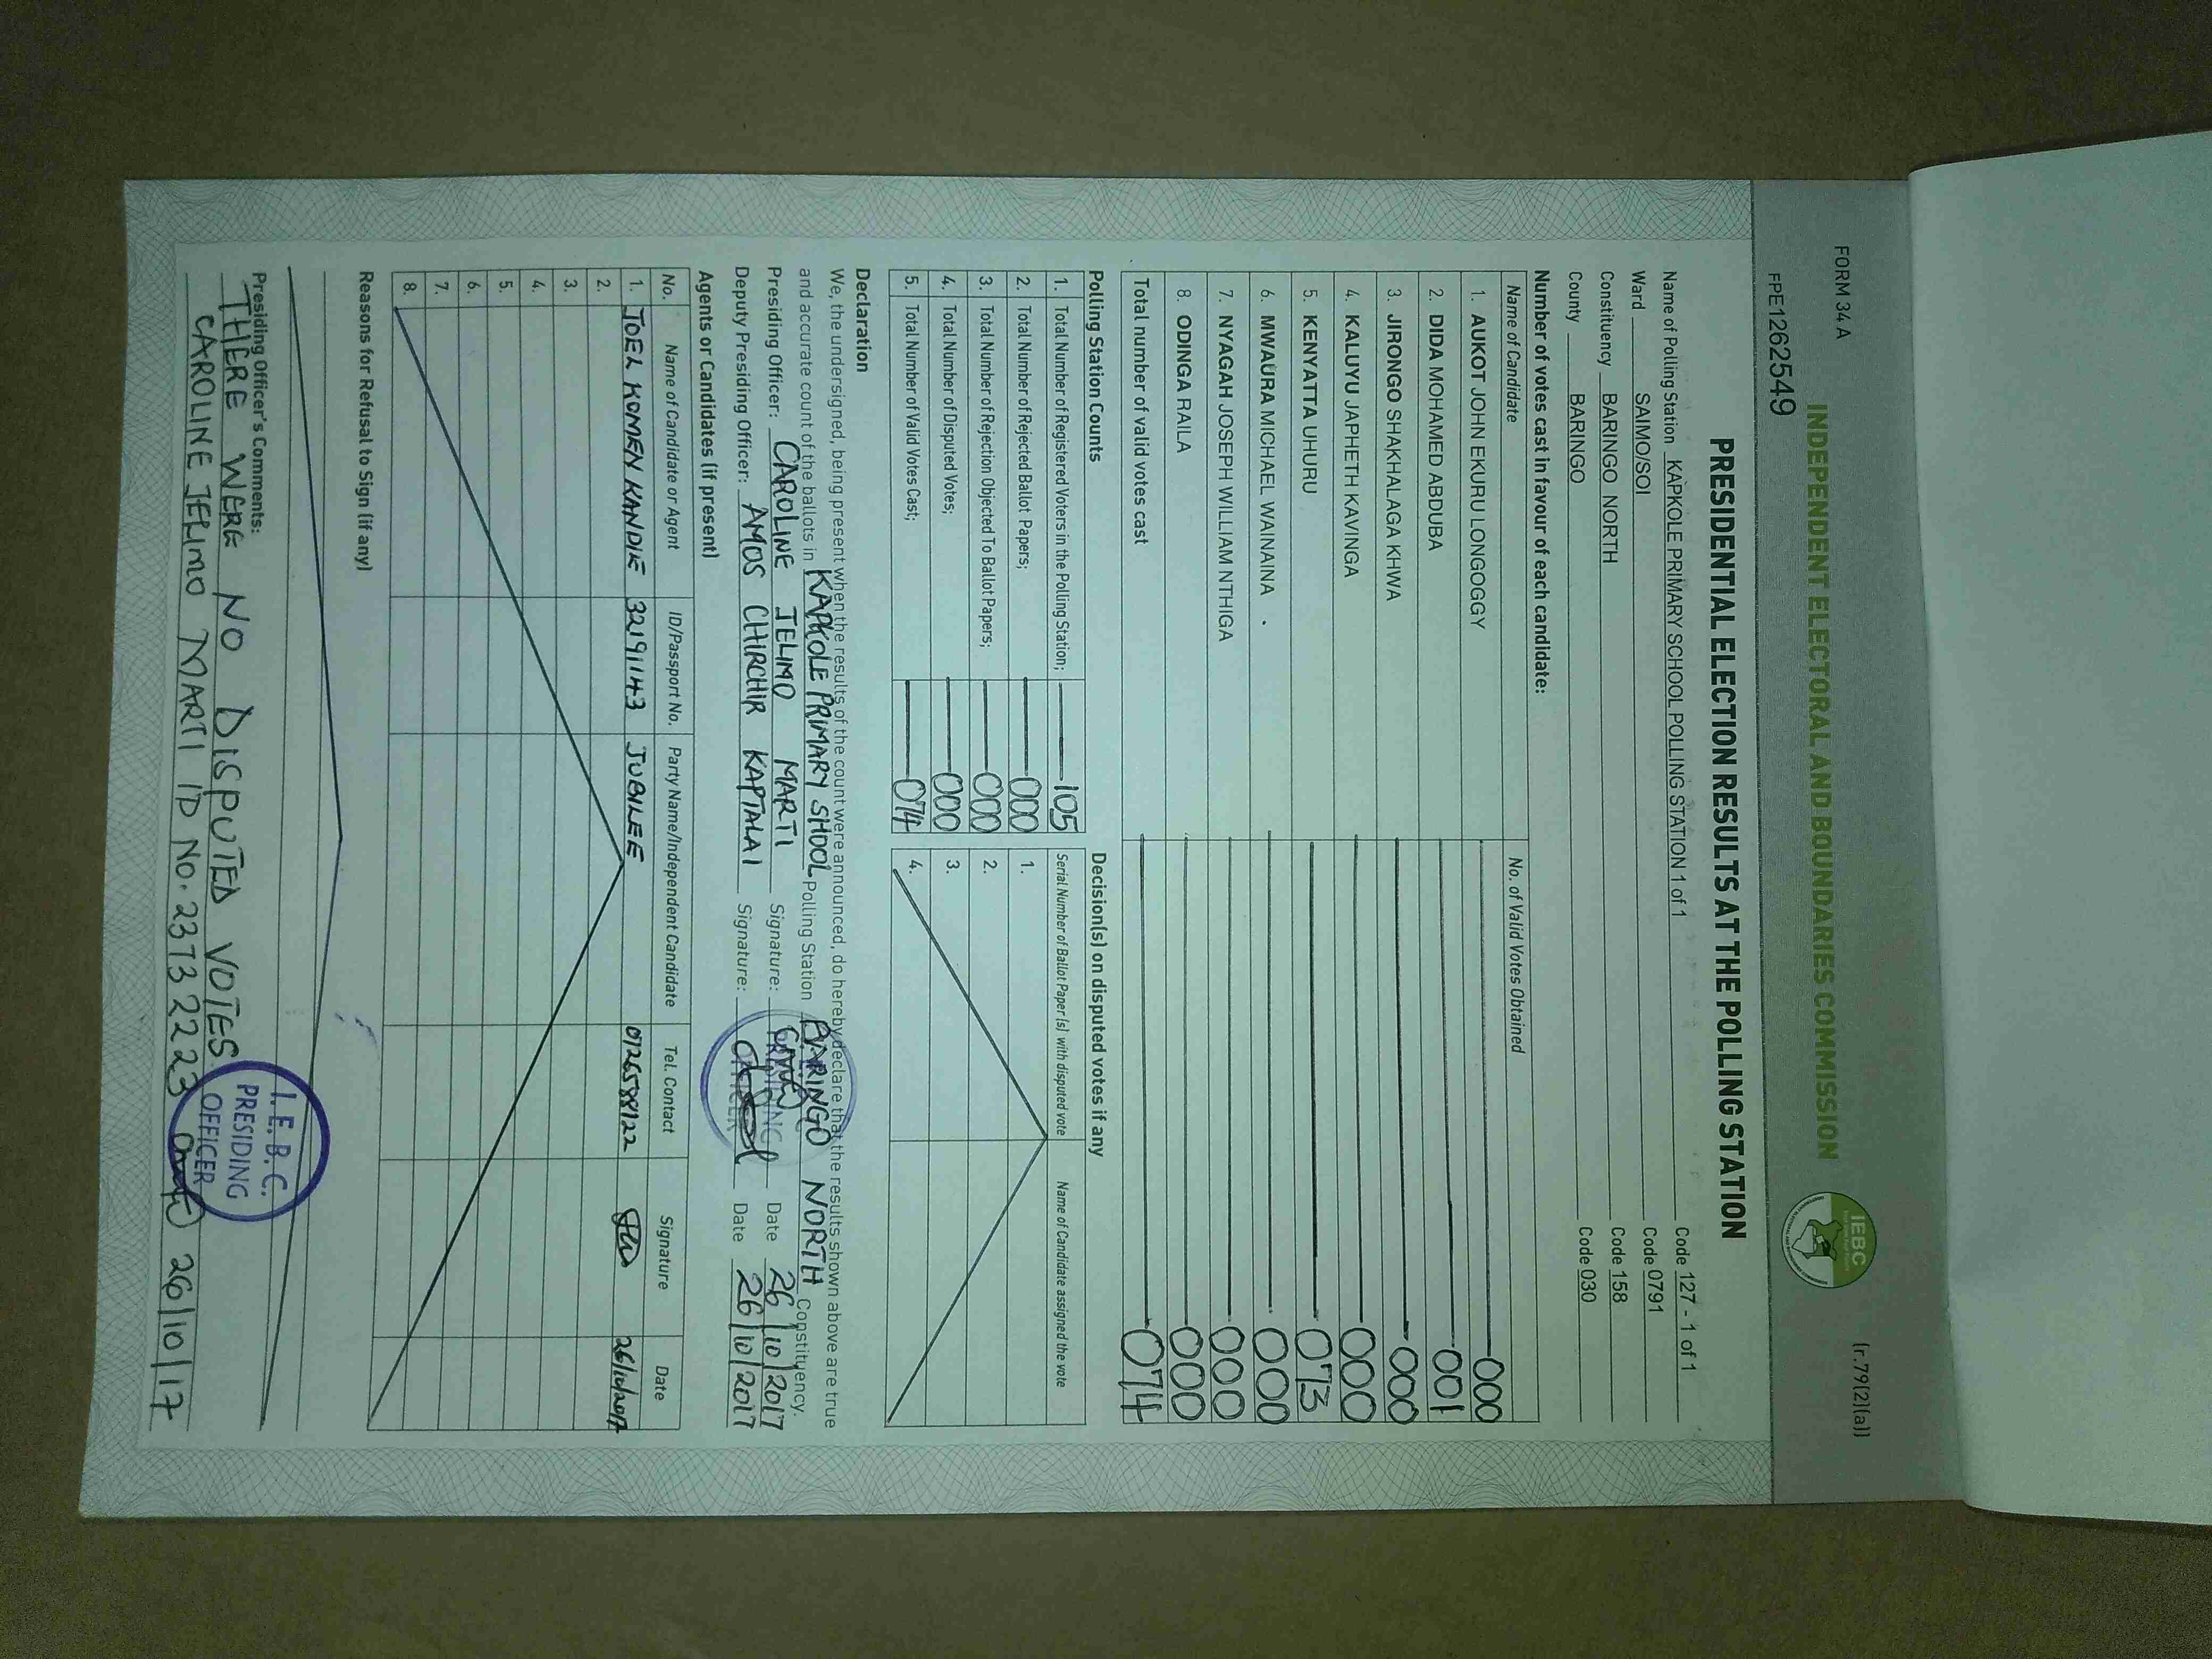 FORM 34 A
(r.79(2)(a))
INDEPENDENT ELECTORAL AND BOUNDARIES COMMISSION
IEBC
FPE1262549
PRESIDENTIAL ELECTION RESULTS AT THE POLLING STATION
Name of Polling Station KAPKOLE PRIMARY SCHOOL POLLING STATION 1 of 1 Code 127 - 1 of 1
Ward SAIMO/SOI Code 0791
Constituency BARINGO NORTH Code 158
County BARINGO Code 030
Number of votes cast in favour of each candidate:
Name of Candidate No. of Valid Votes Obtained
1. AUKOT JOHN EKURU LONGOGGY 000
2. DIDA MOHAMED ABDUBA 001
3. JIRONGO SHAKHALAGA KHWA 000
4. KALUYU JAPHETH KAVINGA 000
5. KENYATTA UHURU 073
6. MWAURA MICHAEL WAINAINA 000
7. NYAGAH JOSEPH WILLIAM NTHIGA 000
8. ODINGA RAILA 000
Total number of valid votes cast 074
Polling Station Counts
1. Total Number of Registered Voters in the Polling Station; 105
2. Total Number of Rejected Ballot Papers; 000
3. Total Number of Rejection Objected To Ballot Papers; 000
4. Total Number of Disputed Votes; 000
5. Total Number of Valid Votes Cast; 074
Decision(s) on disputed votes if any
Serial Number of Ballot Paper(s) with disputed vote Name of Candidate assigned the vote
1.
2.
3.
4.
Declaration
We, the undersigned, being present when the results of the count were announced, do hereby declare that the results shown above are true
and accurate count of the ballots in KAPKOLE PRIMARY SHOOL Polling Station BARINGO NORTH Constituency.
Presiding Officer: CAROLINE JELIMO MARTI Signature: Date 26/10/2017
Deputy Presiding Officer: AMOS CHIRCHIR KAPTALAI Signature: Date 26/10/2017
Agents or Candidates (if present)
No. Name of Candidate or Agent ID/Passport No. Party Name/Independent Candidate Tel. Contact Signature Date
1. JOEL KOMEN KANDIE 32191143 JUBILEE 0726588122 26/10/2017
2.
3.
4.
5.
6.
7.
8.
Reasons for Refusal to Sign (if any)
Presiding Officer's Comments:
THERE WERE NO DISPUTED VOTES
CAROLINE JELIMO MARTI ID No. 23732223 26/10/17
I.E.B.C.
PRESIDING
OFFICER